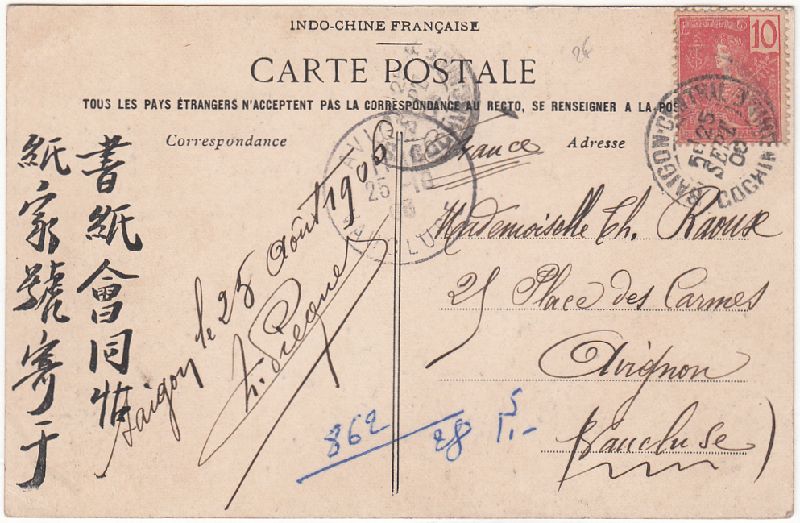 INDO-CHINE FRANÇAISE
CARTE POSTALE
TOUS LES PAYS ÉTRANGERS N'ACCEPTENT PAS LA CORRESPONDANCE AU RECTO, SE RENSEIGNER A LA POS
Correspondance
Adresse
書紙會同帖
紙家號寄于
Saigon le 25 Août 1906
France
Mademoiselle Th. Raoux
25 Place des Carmes
Avignon
(Vaucluse)
862
28
10
SAIGON-CENTRAL
25
SEPT
06
COCHINCHINE
AVIGNON
25-10
06
VAUCLUSE
2F